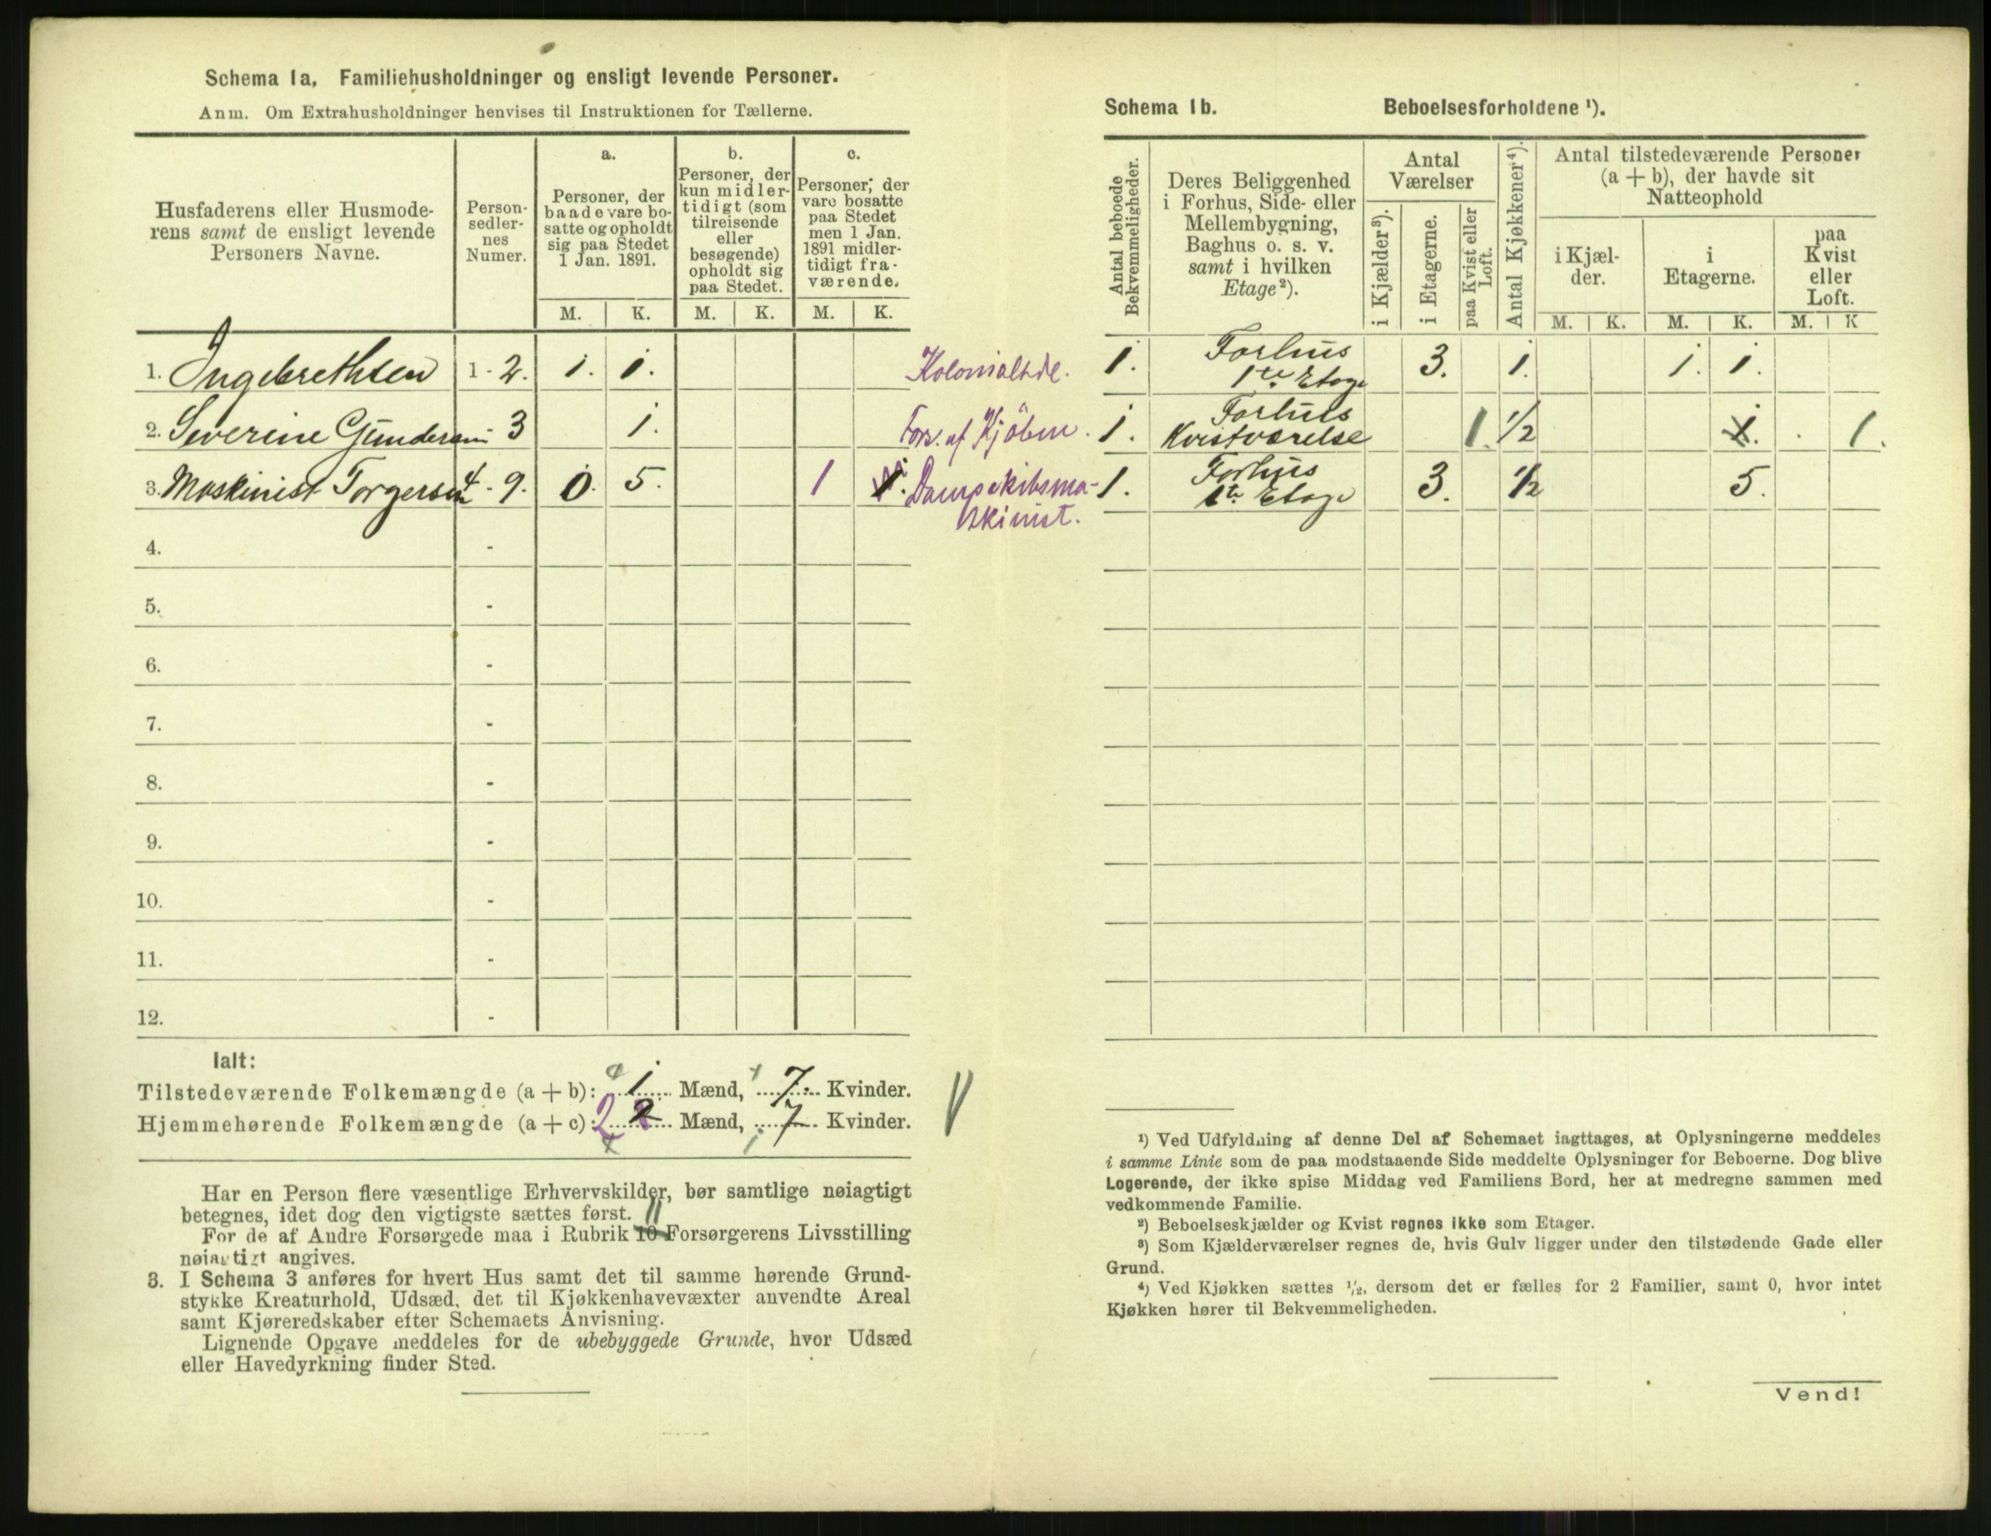 Schema 1a. Familiehusholdninger og ensligt levende Personer.
Anm. Om Extrahusholdninger henvises til Instruktionen for Tællerne.
Husfaderens eller Husmode-
rens samt de ensligt levende
Personers Navne.
Person-
sedler-
nes
Numer.
a.
Personer, der
baade vare bo-
satte og opholdt
sig paa Stedet
1 Jan. 1891.
b.
Personer, der
kun midler-
tidigt (som
tilreisende
eller
besøgende)
opholdt sig
paa Stedet.
c.
Personer, der
vare bosatte
paa Stedet
men 1 Jan.
1891 midler-
tidigt fra-
værende.
M. K. M. K. M. K.
1. Ingebrethsen 1 - 2. 1. 1. Kolonialhdl.
2. Severine Gundersen 3 1. Fors. af Kjöbm.
3. Maskinist Torgersen 4 - 9. 0. 5. 1 1. Dampskibsma-
skinist.
4. -
5. -
6. -
7. -
8. -
9. -
10. -
11. -
12. -
Ialt:
Tilstedeværende Folkemængde (a + b): 1 Mænd, 7 Kvinder.
Hjemmehørende Folkemængde (a + c): 2 2 Mænd, 7 Kvinder.
Har en Person flere væsentlige Erhvervskilder, bør samtlige nøiagtigt
betegnes, idet dog den vigtigste sættes først. 11
For de af Andre Forsørgede maa i Rubrik 10 Forsørgerens Livsstilling
nøiagtigt angives.
3. I Schema 3 anføres for hvert Hus samt det til samme hørende Grund-
stykke Kreaturhold, Udsæd, det til Kjøkkenhavevæxter anvendte Areal
samt Kjøreredskaber efter Schemaets Anvisning.
Lignende Opgave meddeles for de ubebyggede Grunde, hvor Udsæd
eller Havedyrkning finder Sted.
Schema 1b. Beboelsesforholdene ¹).
Antal beboede
Bekvemmeligheder.
Deres Beliggenhed
i Forhus, Side- eller
Mellembygning,
Baghus o. s. v.
samt i hvilken
Etage²).
Antal
Værelser
i Kjælder³).
i Etagerne.
paa Kvist eller
Loft.
Antal Kjøkkener⁴).
Antal tilstedeværende Personer
(a + b), der havde sit
Natteophold
i Kjæl-
der.
i
Etagerne.
paa
Kvist
eller
Loft.
M. K. M. K. M. K
1. Forhus
1te Etage 3. 1. 1. 1.
1. Forhus
Kvistværelse 1. 1/2 1. 1.
1. Forhus
1te Etage 3. 1/2 5.
¹) Ved Udfyldning af denne Del af Schemaet iagttages, at Oplysningerne meddeles
i samme Linie som de paa modstaaende Side meddelte Oplysninger for Beboerne. Dog blive
Logerende, der ikke spise Middag ved Familiens Bord, her at medregne sammen med
vedkommende Familie.
²) Beboelseskjælder og Kvist regnes ikke som Etager.
³) Som Kjælderværelser regnes de, hvis Gulv ligger under den tilstødende Gade eller
Grund.
⁴) Ved Kjøkken sættes ½, dersom det er fælles for 2 Familier, samt 0, hvor intet
Kjøkken hører til Bekvemmeligheden.
Vend!